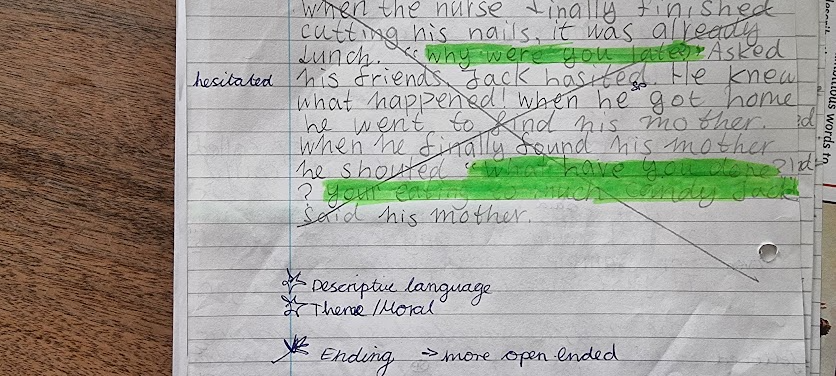 When the nurse finally finished
cutting his nails, it was already
Lunch. "why were you late?" Asked
hesitated his friends. Jack hasited. He knew
what happened! when he so got home
he went to find his mother. ed
when he finally found his mother
he shouted "what have you done?!
? your eating to much candy Jack
said his mother.
Descriptive language
Theme/Moral
Ending → more open ended
words to